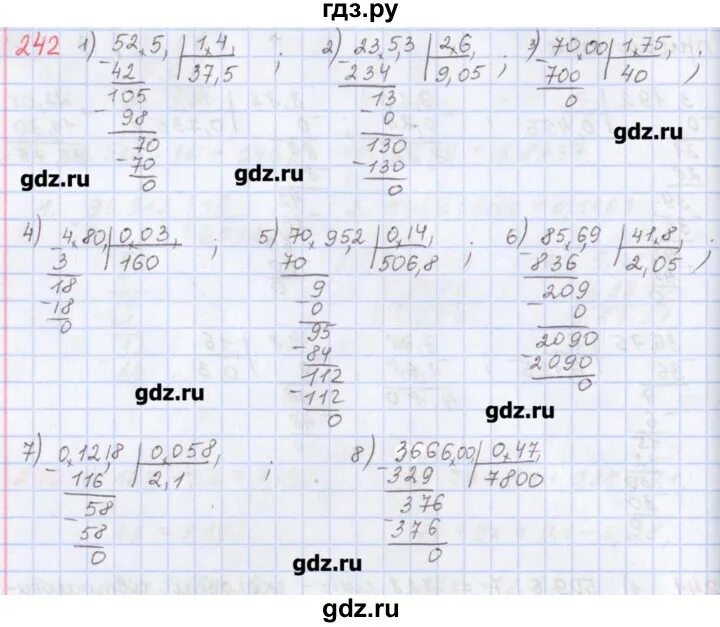 гдз.ру
242 1) 52,5, | 1,4, ; 2) 23,5,3 | 2,6, ; 3) 70,00 | 1,75, ;
- 42 37,5 - 234 9,05 - 700 40
105 13 0
- 98 - 0
70 130
- 70 - 130
0 0
gdz.ru gdz.ru gdz.ru
4) 4,80, | 0,03, ; 5) 70,95,2 | 0,14, ; 6) 85,6,9 | 41,8, ;
- 3 160 70 506,8 - 836 2,05
18 9 209
- 18 - 0 - 0
0 95 2090
- 84 - 2090
112 0
- 112
0
gdz.ru gdz.ru
7) 0,121,8 | 0,058, ; 8) 3666,00, | 0,47,
- 116 2,1 - 329 7800
58 376
- 58 - 376
0 0
gdz.ru
gdz.ru